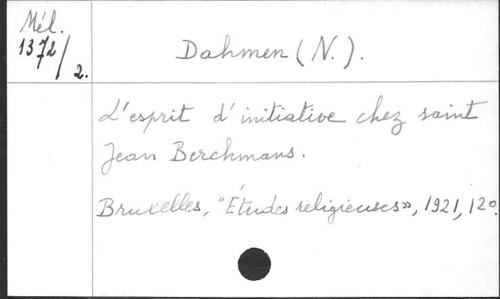 Mél.
1372/2.
Dahmen (N.).
L'esprit d'initiative chez saint
Jean Berchmans.
Bruxelles, "Études religieuses», 1921, 12º.